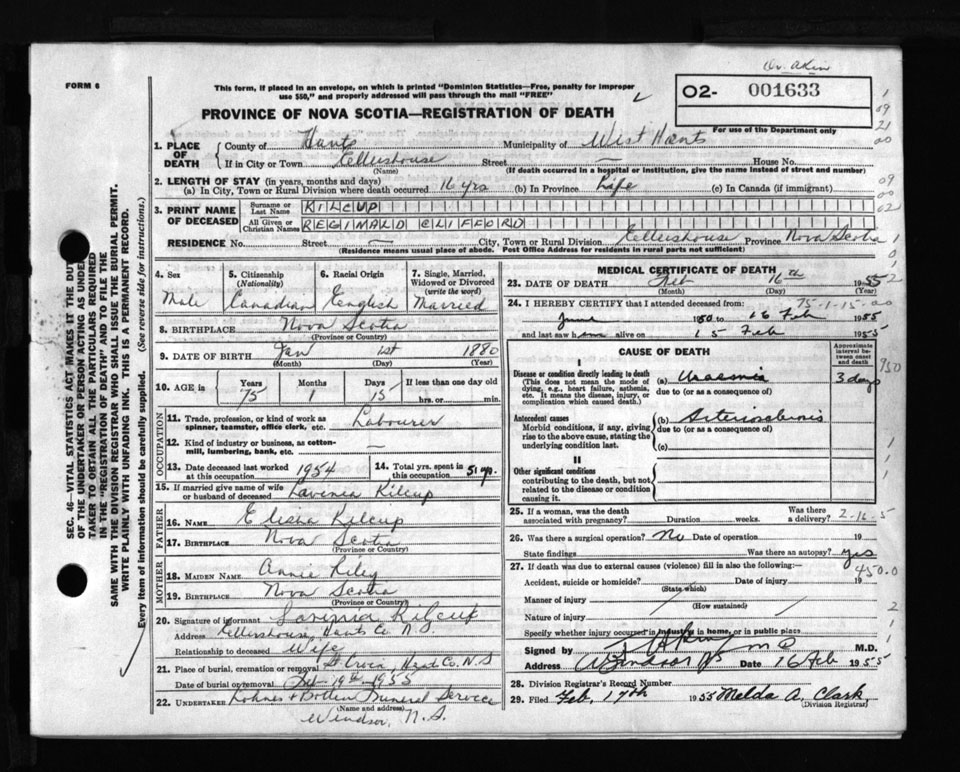 Dr. Akin
FORM 6
This form, if placed in an envelope, on which is printed "Dominion Statistics—Free, penalty for improper
use $50," and properly addressed will pass through the mail "FREE"
02- 001633
For use of the Department only
PROVINCE OF NOVA SCOTIA—REGISTRATION OF DEATH
1. PLACE OF DEATH County of Hants Municipality of West Hants
If in City or Town Ellershouse Street — House No.
(Name) (If death occurred in a hospital or institution, give the name instead of street and number)
2. LENGTH OF STAY (in years, months and days)
(a) In City, Town or Rural Division where death occurred 16 yrs (b) In Province Life (c) In Canada (if immigrant)
3. PRINT NAME OF DECEASED Surname or Last Name KILCUP
All Given or Christian Names REGINALD CLIFFORD
RESIDENCE No. Street — City, Town or Rural Division Ellershouse Province Nova Scotia
(Residence means usual place of abode. Post Office Address for residents in rural parts not sufficient)
SEC. 46—VITAL STATISTICS ACT MAKES IT THE DUTY
OF THE UNDERTAKER OR PERSON ACTING AS UNDER-
TAKER TO OBTAIN ALL THE PARTICULARS REQUIRED
IN THE "REGISTRATION OF DEATH" AND TO FILE THE
SAME WITH THE DIVISION REGISTRAR WHO SHALL ISSUE THE BURIAL PERMIT.
WRITE PLAINLY WITH UNFADING INK. THIS IS A PERMANENT RECORD.
Every item of information should be carefully supplied. (See reverse side for instructions.)
4. Sex Male
5. Citizenship (Nationality) Canadian
6. Racial Origin English
7. Single, Married, Widowed or Divorced (write the word) Married
8. BIRTHPLACE Nova Scotia
(Province or Country)
9. DATE OF BIRTH Jan 1st 1880
(Month) (Day) (Year)
10. AGE in Years 75 Months 1 Days 15 If less than one day old
hrs. or min.
11. Trade, profession, or kind of work as
spinner, teamster, office clerk, etc. Labourer
12. Kind of industry or business, as cotton-
mill, lumbering, bank, etc. —
13. Date deceased last worked at this occupation 1954 14. Total yrs. spent in this occupation 51 yrs.
15. If married give name of wife
or husband of deceased Lavenia Kilcup
FATHER
16. NAME Elisha Kilcup
17. BIRTHPLACE Nova Scotia
(Province or Country)
MOTHER
18. MAIDEN NAME Annie Riley
19. BIRTHPLACE Nova Scotia
(Province or Country)
20. Signature of informant Lavinia Kilcup
Address Ellershouse, Hants Co N.S.
Relationship to deceased Wife
21. Place of burial, cremation or removal St Croix, Hants Co. N.S
Date of burial or removal Feb 19th 1955
22. UNDERTAKER Funeral Service
(Name and address)
Windsor, N.S.
MEDICAL CERTIFICATE OF DEATH
23. DATE OF DEATH Feb 16th 1955
(Month) (Day) (Year)
24. I HEREBY CERTIFY that I attended deceased from:
June 1950 to 16 Feb 1955
and last saw him alive on 15 Feb 1955
CAUSE OF DEATH
Approximate interval between onset and death
I
Disease or condition directly leading to death
(This does not mean the mode of
dying, e.g., heart failure, asthenia,
etc. It means the disease, injury, or
complication which caused death.)
(a) Uraemia 3 days
due to (or as a consequence of)
Antecedent causes
Morbid conditions, if any, giving
rise to the above cause, stating the
underlying condition last.
(b) Arteriosclerosis
due to (or as a consequence of)
(c)
II
Other significant conditions
contributing to the death, but not
related to the disease or condition
causing it.
25. If a woman, was the death
associated with pregnancy? Duration weeks. Was there a delivery? 2-16-5
26. Was there a surgical operation? No Date of operation 19
State findings Was there an autopsy? yes
27. If death was due to external causes (violence) fill in also the following: 450.0
Accident, suicide or homicide? Date of injury 19
(State which)
Manner of injury
(How sustained)
Nature of injury
Specify whether injury occurred in industry, in home, or in public place
Signed by M.D.
Address Windsor NS Date 16 Feb 1955
28. Division Registrar's Record Number
29. Filed Feb. 17th 1955 Melda A. Clark
(Division Registrar)